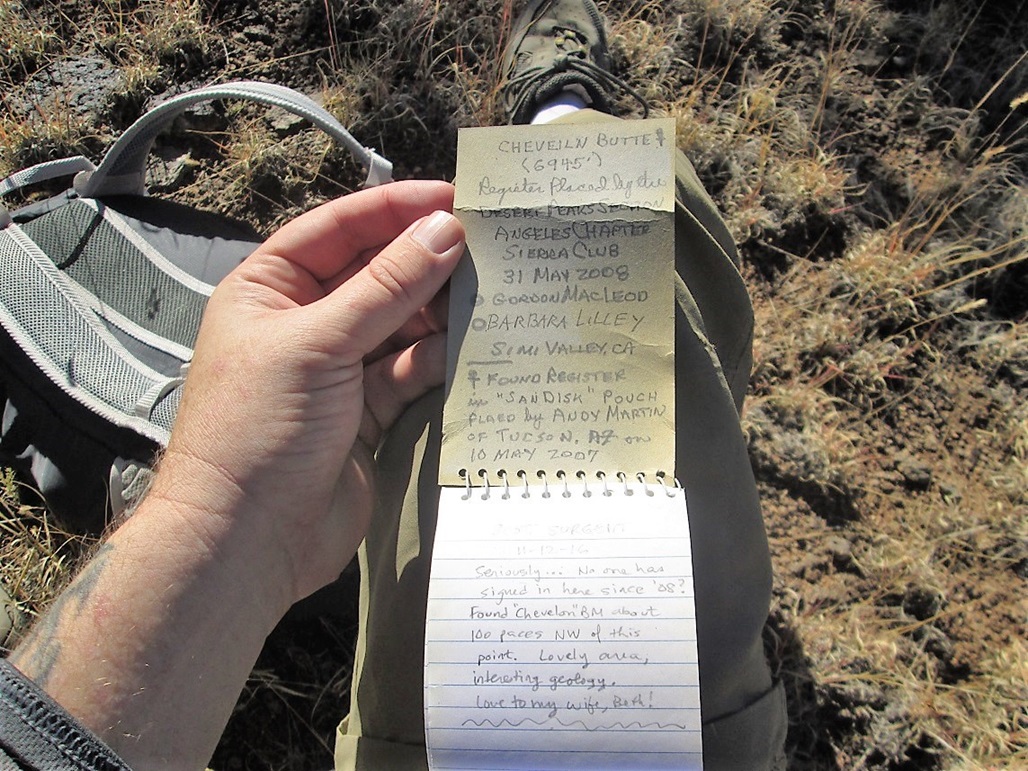 CHEVEILN BUTTE
(6945')
Register Placed by the
DESERT PEAKS SECTION
ANGELES CHAPTER
SIERRA CLUB
31 MAY 2008
GORDON MACLEOD
BARBARA LILLEY
SIMI VALLEY, CA
FOUND REGISTER
in "SANDISK" POUCH
PLAED by ANDY MARTIN
OF TUCSON, AZ on
10 MAY 2007
SURGENT
11-12-16
Seriously... No one has
signed in here since '08?
Found "Chevelon" BM about
100 paces NW of this
point. Lovely area,
interesting geology.
Love to my wife, Beth!